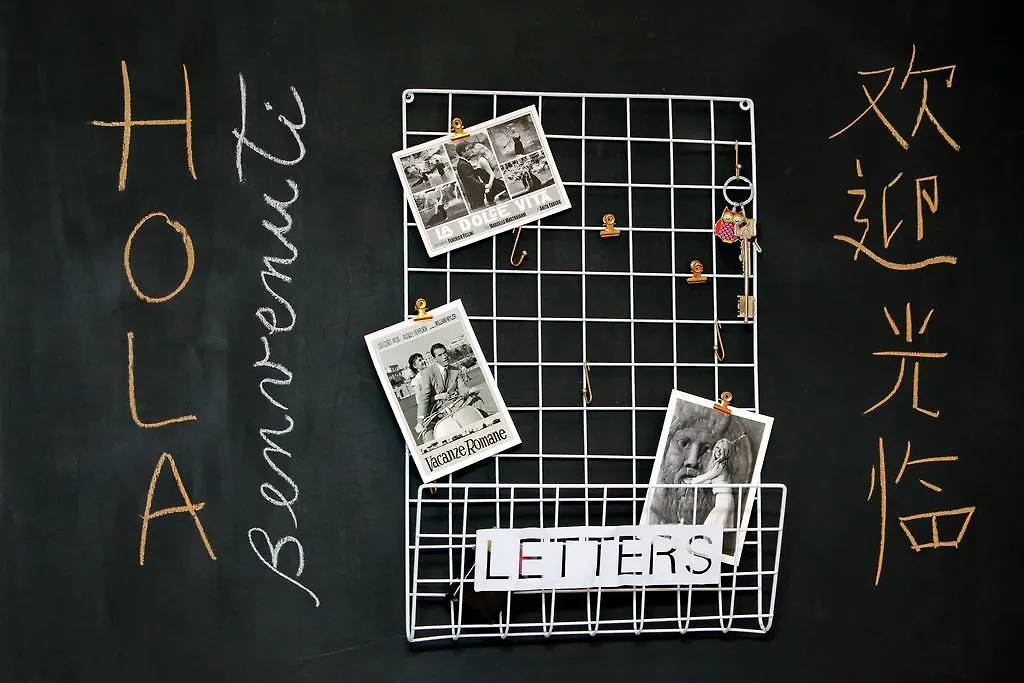 HOLA
Benvenuti
LA DOLCE VITA
FEDERICO FELLINI
MARCELLO MASTROIANNI
ANITA EKBERG
GREGORY PECK AUDREY HEPBURN
WILLIAM WYLER
Vacanze Romane
LETTERS
欢迎光临